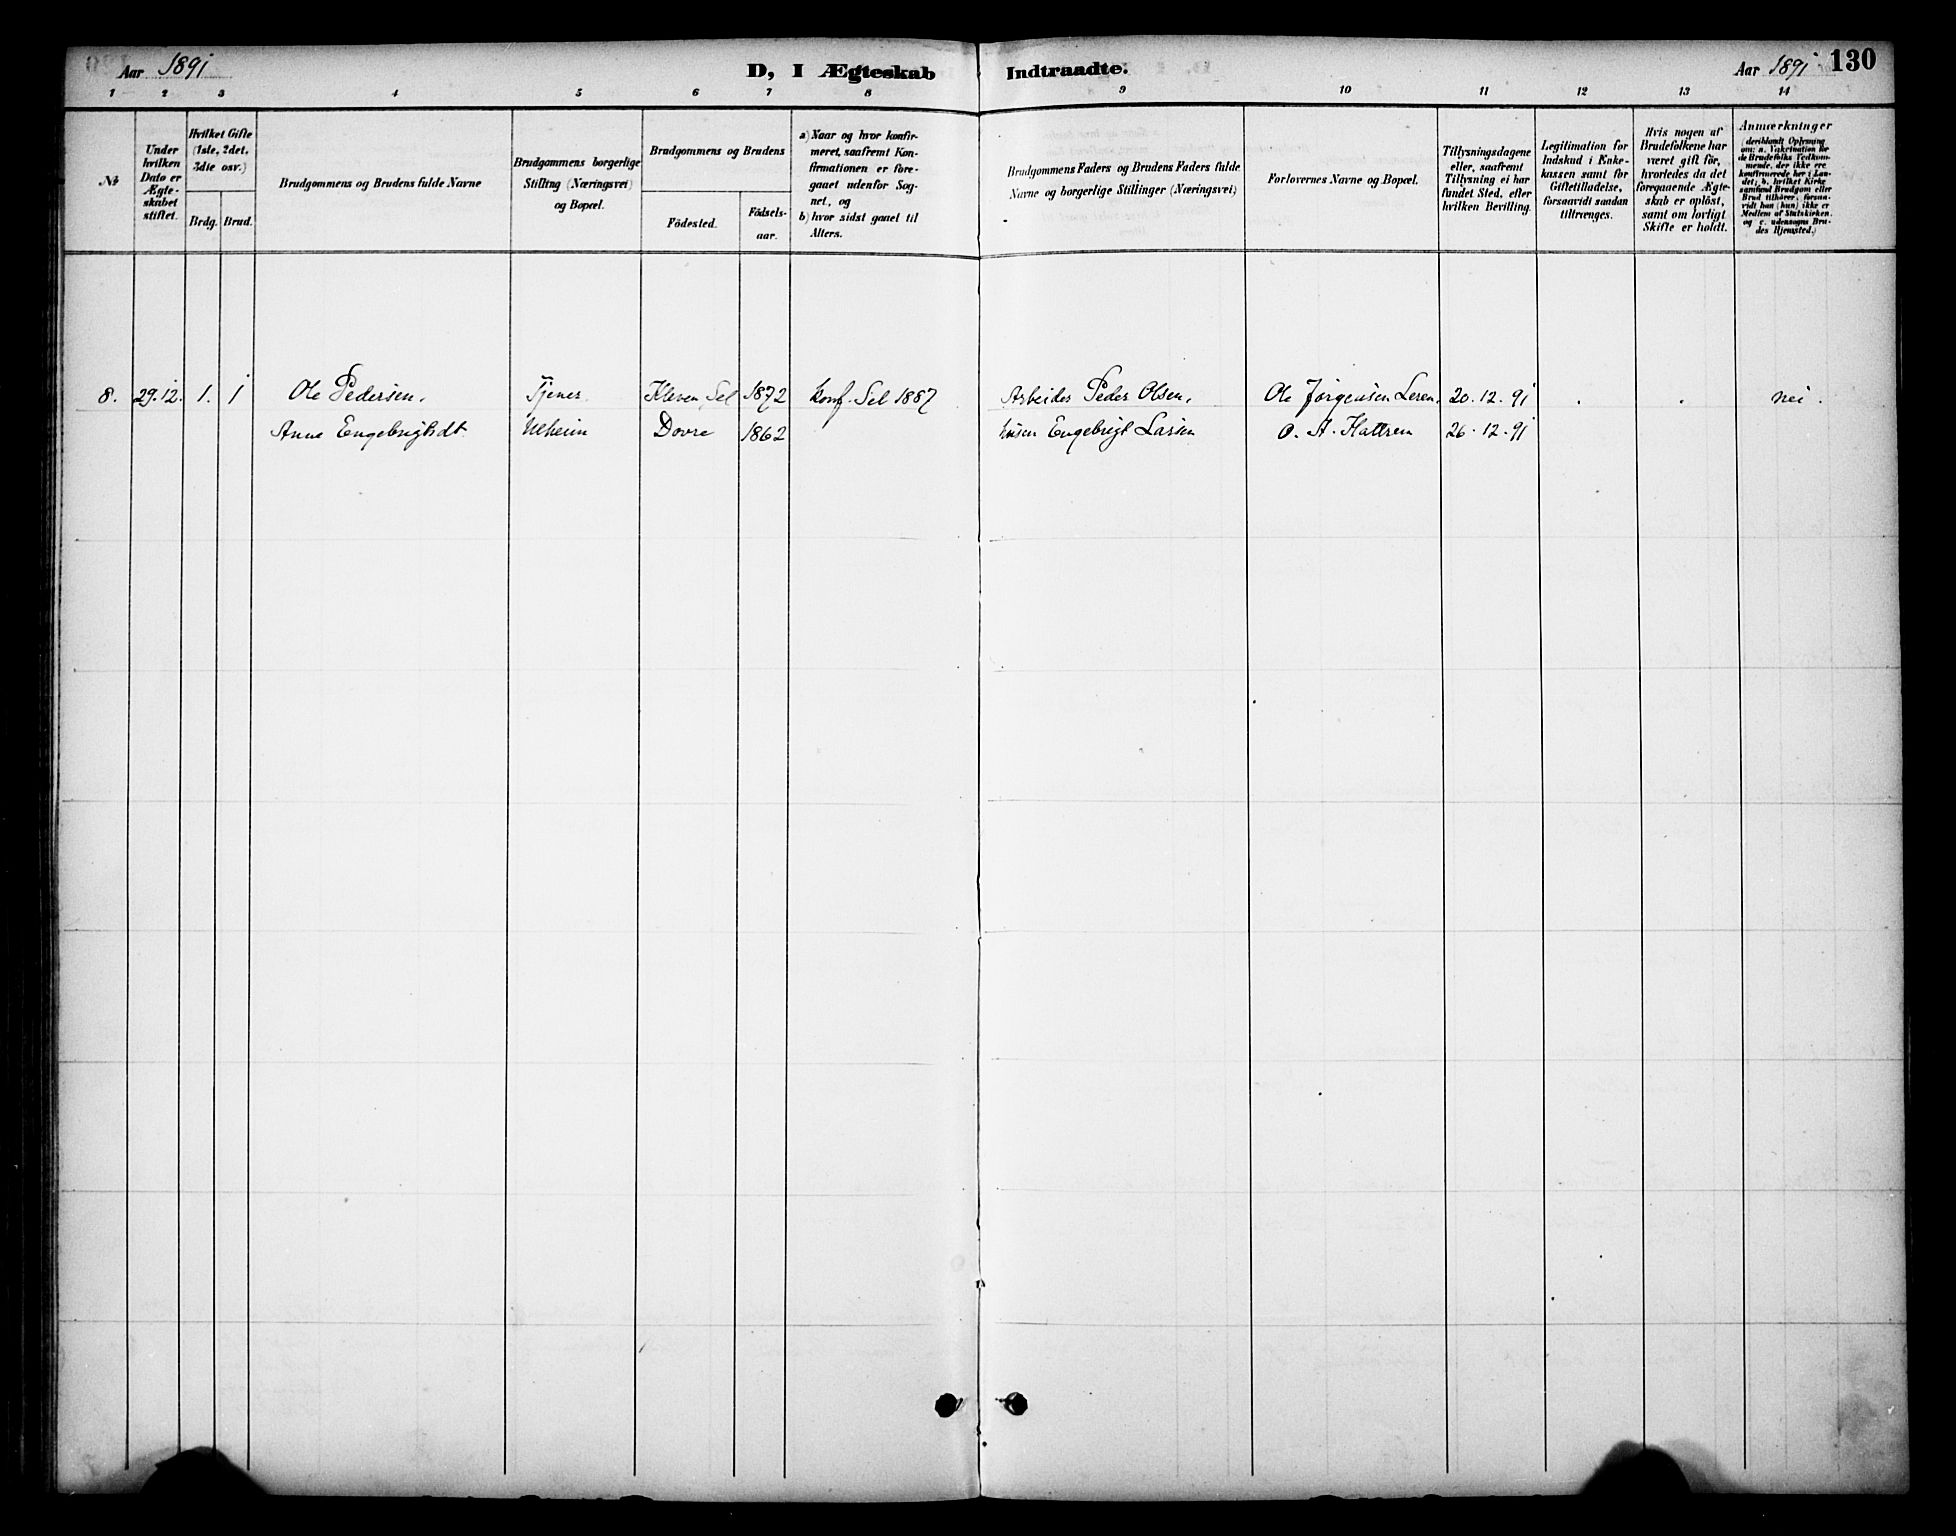 Aar 1891
D, I Ægteskab Indtraadte.
Aar 1891 130
1 2 3 4 5 6 7 8 9 10 11 12 13 14
No
Under
hvilken
Dato er
Ægte-
skabet
stiftet.
Hvilket Gifte
(1ste, 2det,
3die osv.)
Brdg. Brud.
Brudgommens og Brudens fulde Navne
Brudgommens borgerlige
Stilling (Næringsvei)
og Bopæl.
Brudgommens og Brudens
Födested.
Födsels-
aar.
a) Naar og hvor konfir-
meret, saafremt Kon-
firmationen er fore-
gaaet udenfor Sog-
net, og
b) hvor sidst gaaet til
Alters.
Brudgommens Faders og Brudens Faders fulde
Navne og borgerlige Stillinger (Næringsvei)
Forlovernes Navne og Bopæl.
Tillysningsdagene
eller, saafremt
Tillysning ei har
fundet Sted, efter
hvilken Bevilling.
Legitimation for
Indskud i Enke-
kassen samt for
Giftetilladelse,
forsaavidt saadan
tiltrænges.
Hvis nogen af
Brudefolkene har
været gift för,
hvorledes da det
foregaaende Ægte-
skab er oplöst,
samt om lovligt
Skifte er holdt.
Anmærkninger
(deriblandt Oplysning
om: a. Vakcination for
de Brudefolks Vedkom-
mende, der ikke ere
konfirmerede her i Lan-
det; b. hvilket Kirke
samfund Brudgom eller
Brud tilhører, forsaa-
vidt han (hun) ikke er
Medlem af Statskirken,
og c. udensogns Bru-
des Hjemsted.)
8. 29.12. 1. 1 Ole Pedersen, Tjener Kleven, Sel 1872 konf. Sel 1887 Arbeider Peder Olsen, Ole Jörgensen Leren, 20.12.91 . . nei.
Anne Engebrigtsdt. Ulheim Dovre 1862 Engebrigt Larsen O. A. Hattrem 26.12.91